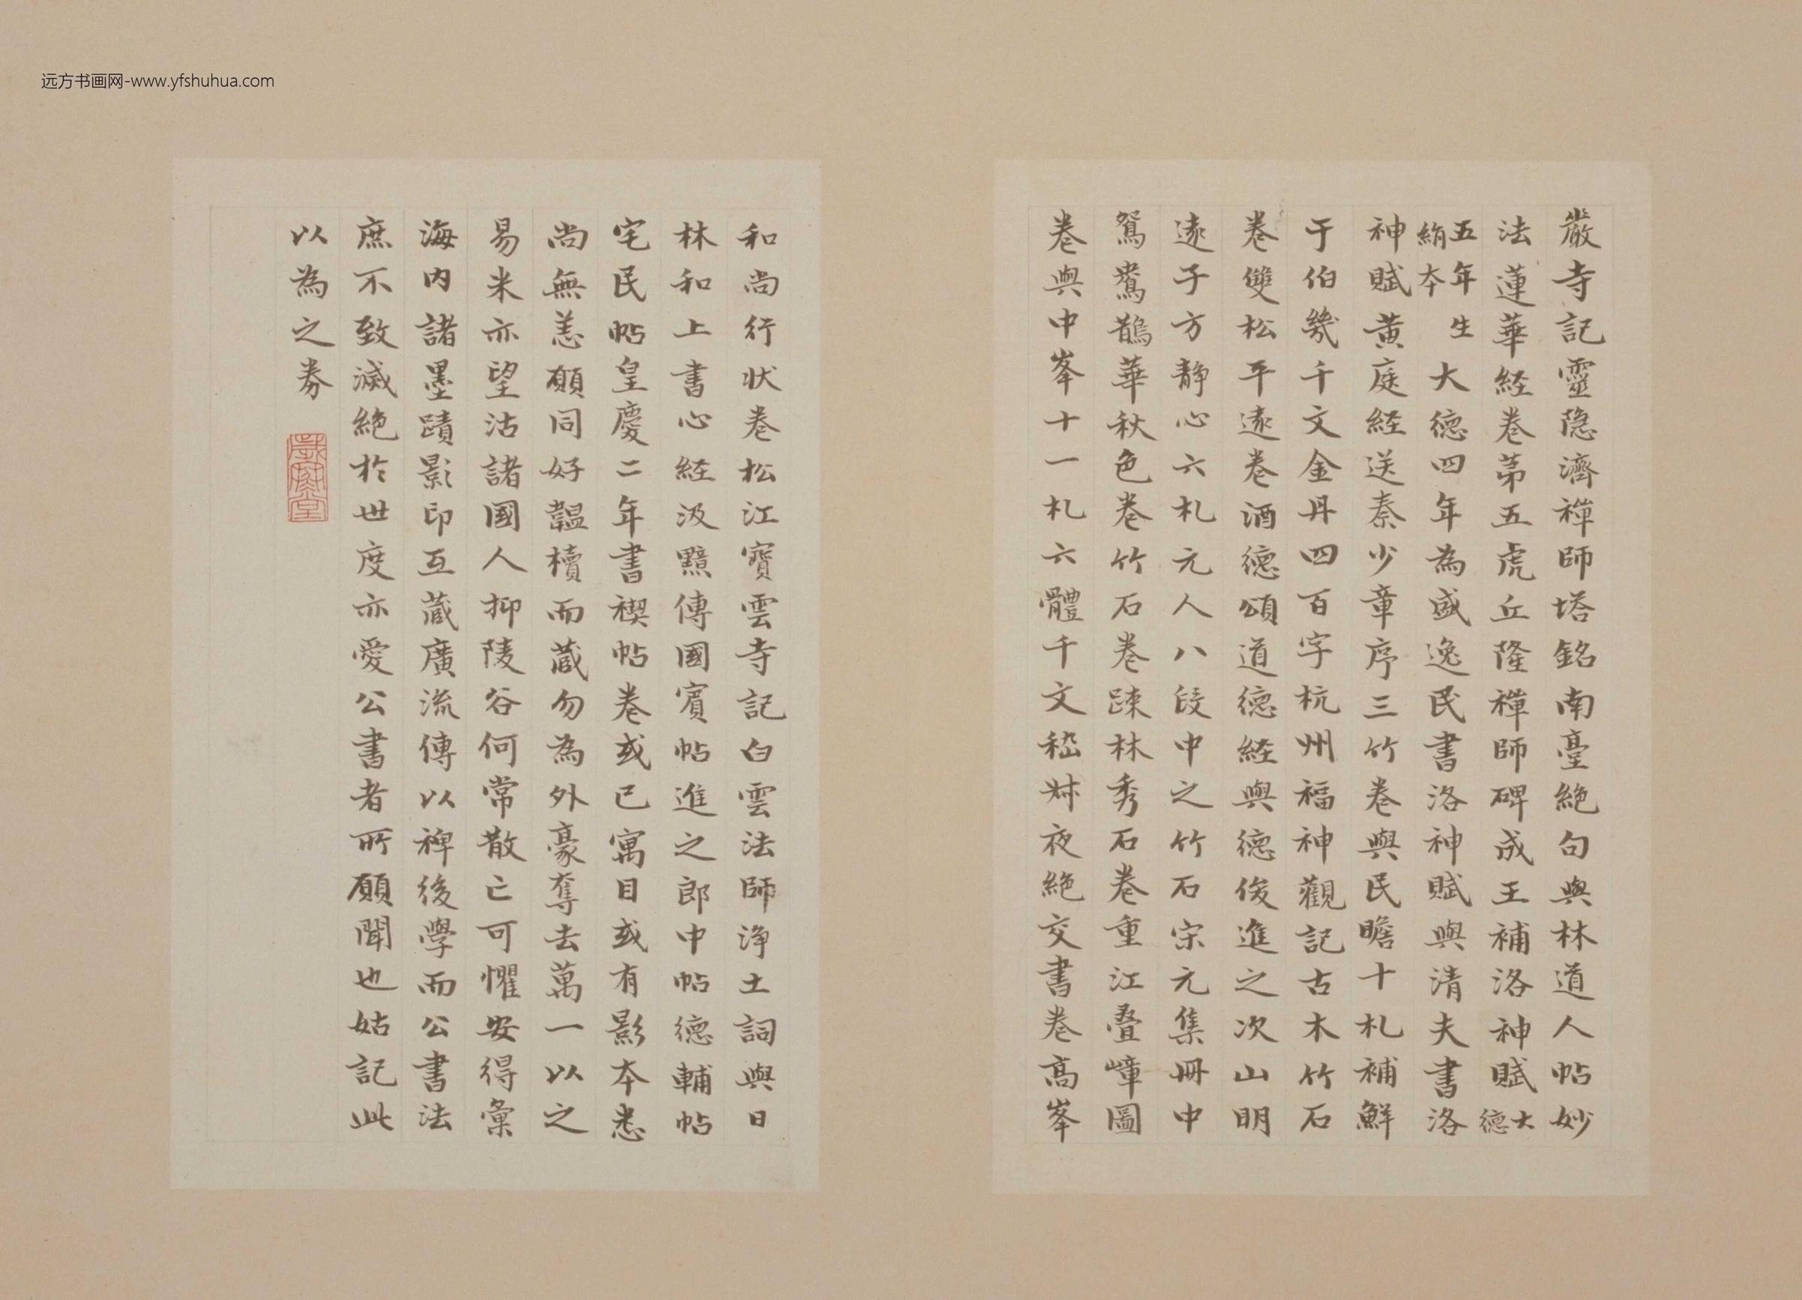 远方书画网-www.yfshuhua.com
嚴寺記靈隱濟禪師塔銘南臺絕句與林道人帖妙
法蓮華經卷第五虎丘隆禪師碑成王補洛神賦大德
五年生絹本大德四年為盛逸民書洛神賦與清夫書洛
神賦黃庭経送秦少章序三竹卷與民瞻十札補鮮
于伯幾千文金丹四百字杭州福神觀記古木竹石
卷雙松平遠卷酒德頌道德経與德俊進之次山明
遠子方静心六札元人八段中之竹石宋元集冊中
鴛鴦鵲華秋色卷竹石卷踈林秀石卷重江疊嶂圖
卷與中峯十一札六體千文嵇叔夜絕交書卷高峯
和尚行状卷松江寳雲寺記白雲法師淨土詞與日
林和上書心経汲黯傳國賓帖進之郎中帖德輔帖
宅民帖皇慶二年書禊帖卷或已寓目或有影本悉
尚無恙願同好韞櫝而藏勿為外豪奪去萬一以之
易米亦望沽諸國人抑陵谷何常散亡可懼安得彙
海内諸墨蹟影印互藏廣流傳以裨後學而公書法
庶不致滅絕於世度亦愛公書者所願聞也姑記此
以為之券